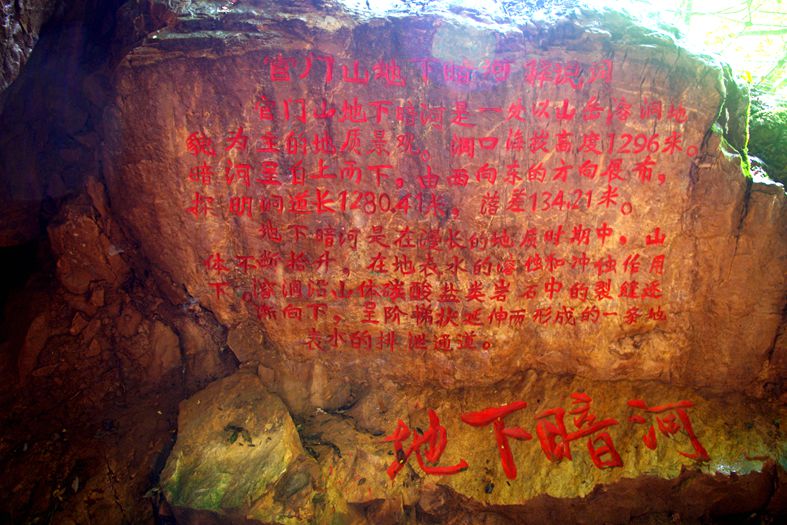 官门山地下暗河 探洞
官门山地下暗河是一处以山岳溶洞地
貌为主的地质景观。洞口海拔高度1296米。
暗河呈自上而下，由西向东的方向展布，
探明洞道长1280.41米，落差134.21米。
地下暗河是在漫长的地质时期中，山
体不断抬升，在地表水的溶蚀和冲蚀作用
下。溶洞沿山体碳酸盐类岩石中的裂缝逐
渐向下，呈阶梯状延伸而形成的一条地
表水的排泄通道。
地下暗河